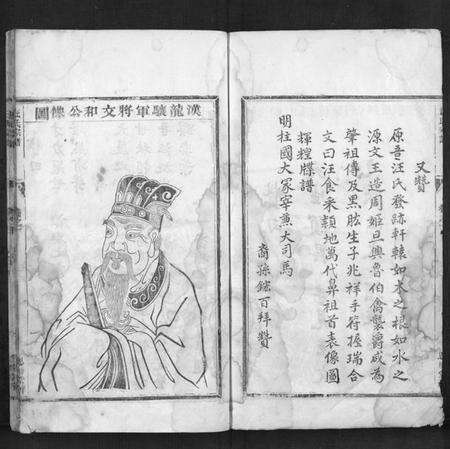 又贊
原吾汪氏發跡軒轅如木之根如水之
源文王造周姬旦興魯伯禽襲爵成為
肇祖傳及黑肱生子兆祥手符握瑞合
文曰汪食采潁地萬代鼻祖首表像圖
輝煌牒譜
明柱國大冢宰兼大司馬
裔孫鋐百拜贊
漢龍驤軍將文和公像圖